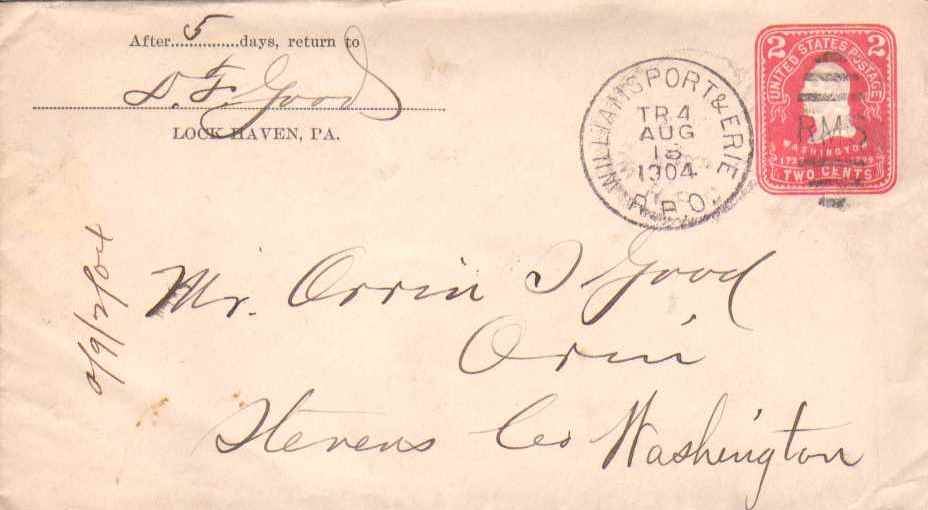 After 5 days, return to
D. F. Good
LOCK HAVEN, PA.
WILLIAMSPORT & ERIE
TR 4
AUG
1904
R.P.O.
2 2
UNITED STATES POSTAGE
RMS
WASHINGTON
TWO CENTS
Mr. Orrin I Good
Orin
Stevens Co Washington